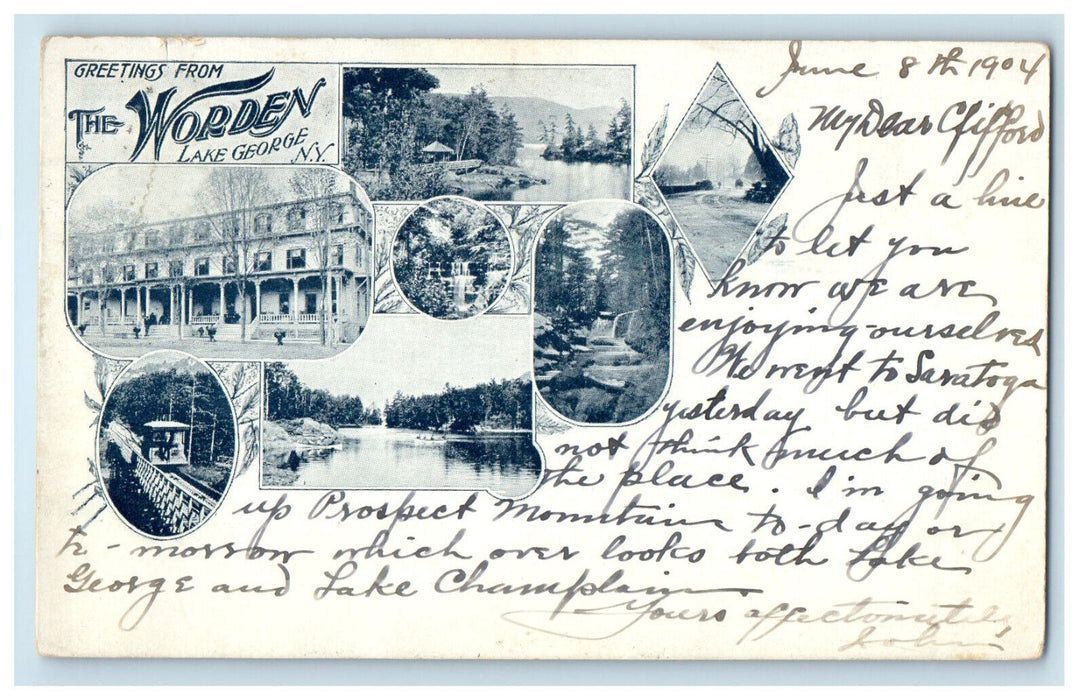 GREETINGS FROM
THE WORDEN
LAKE GEORGE
N.Y.
June 8th 1904
My Dear Clifford
Just a line
to let you
know we are
enjoying ourselves
We went to Saratoga
yesterday but did
not think much of
the place. I'm going
up Prospect Mountain to-day or
to-morrow which over looks both Lake
George and Lake Champlain.
Yours affectionately
John